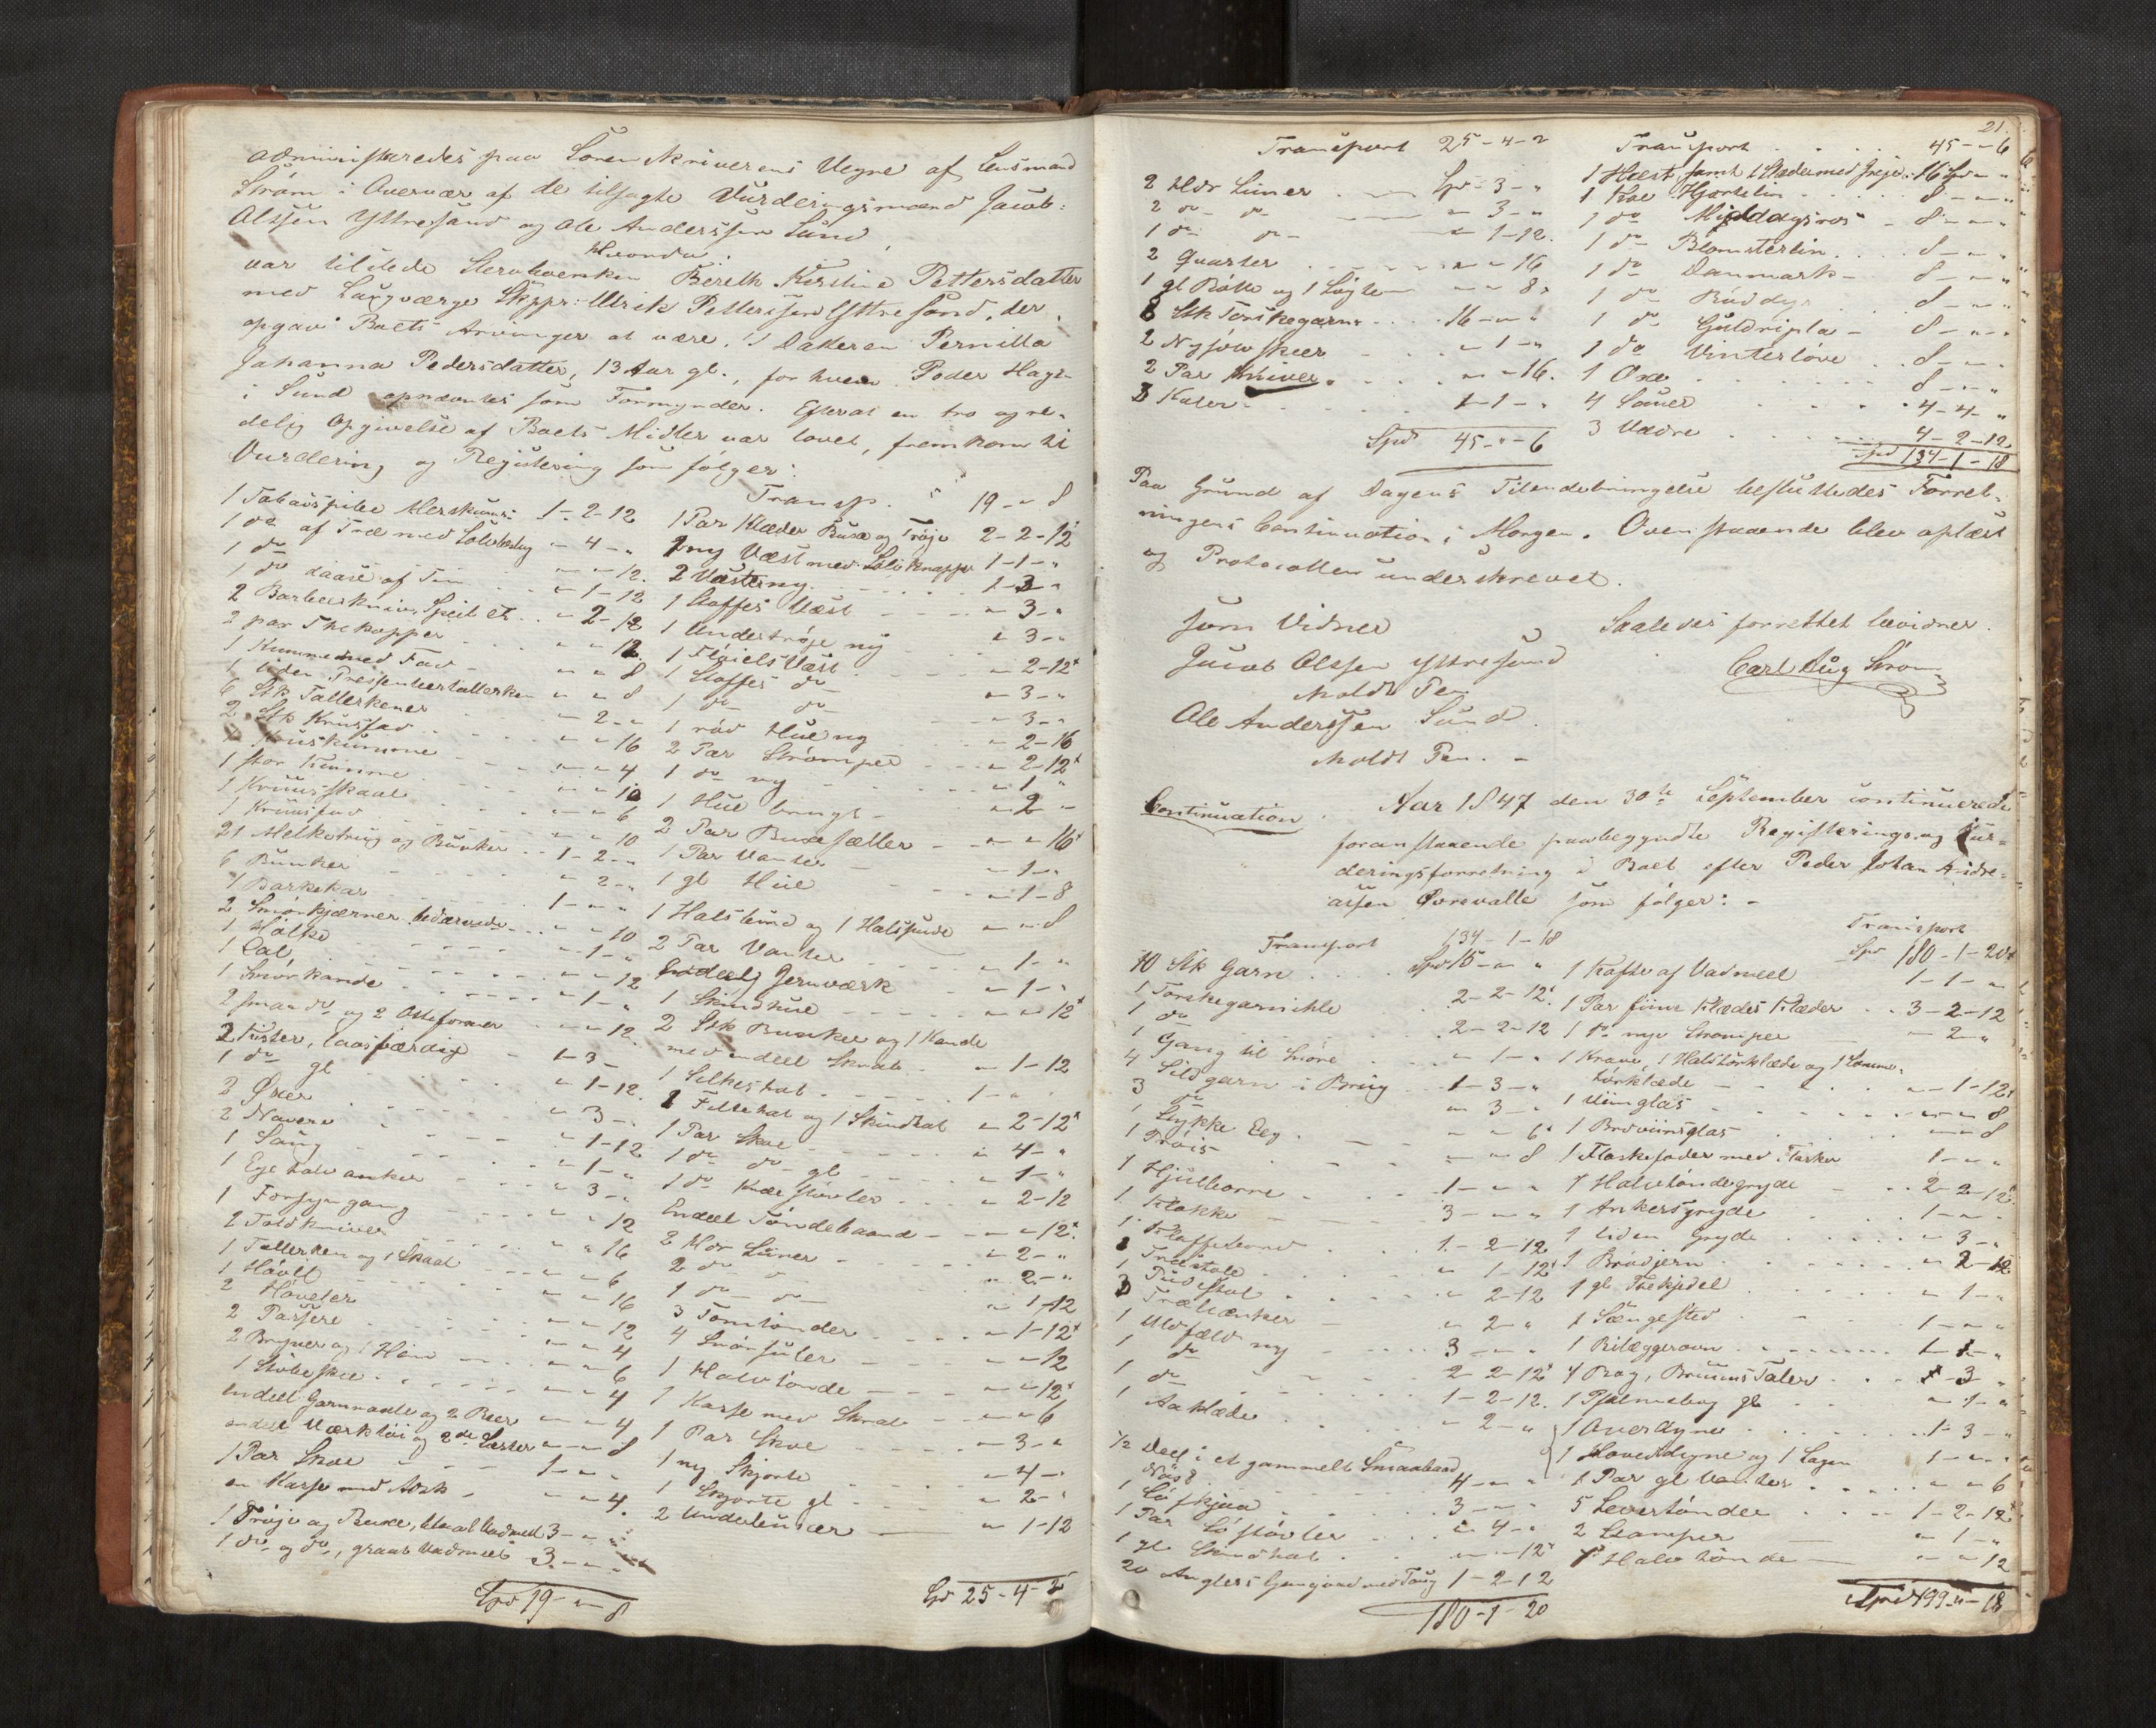 administeredes paa Sorenskriverens Vegne af Lensmand
Strøm i Overvær af de tilsagte Vurderingsmænd Jacob
Olssen Yttresund og Ole Anderssen Sund
Hvorda:
var tilstede Stervboenken Bereth Kirstine Pettersdatter
med Laugværge Skppr: Ulrik Petterssen Yttresund, der
opgav Boets Arvinger at være: 1 Datteren Pernilla
Johanna Pedersdatter, 13 Aar gl., for hvem Peder Hagen
i Sund opnævntes som Formynder. Efterat en tro og re-
delig Opgivelse af Boets Midler var lovet, fremkom til
Vurdering og Registering som følger:
1 Tobakspibe Merskums 1-2-12
1 do af Træ med Sølvbeslag " 4 - "
1 do " " 12.
1 do daase af Tin " 1-12
2 Barbeerknive, Speil etc. " 2-12
2 par Thekopper " " 12.
1 Kumme med Fad " " 8
1 liden Pressenteertallerken " " 8
6 Stk Tallerkener " 2 - "
2 Stk Kruusfad " " 16
Kruuskumme " " 4
1 stor Kumme " " 10
1 Kruusskaal " " 6
1 Kruusfad " " 10
21 Melketrug og Bunker 1-2-"
6 Bunker " 2-"
1 Barkekar 1 - " "
2 Smørkjærner bedærvede " " 10
1 Holke " 1-"
1 Bal " " 12
1 Smørkande " 1-"
2 smaa do og 2 Osteformer " " 12.
2 Kister, laasfærdige 1-3-
1 do gl " 1-12.
2 Øxer " 3 -
2 Navere " 1-12
1 Saug " 1-"
1 Ege halv anker " 3-"
1 Forsyngang " " 12
2 Toldknive " " 16
1 Tallerken og 1 Skaal " " 6
1 Høvel " " 16
2 Høvler " " 12
2 Passere " " 4
2 Bryner og 1 Hein " " 6
1 Støbeskee " " 4
Endeel Garnnaale og 2 Reer " " 4
endeel Værktøi og 2de Læster " " 8
1 Par Skoe 1-"-"
en Kasse med Adsk. " " 4.
1 Trøje og Buxe, blaat Vadmel 3-"-"
1 do og do, graat Vadmel 3-"-"
Spd 19-"-8
Transp. 19 " 8
1 Par Klæder Buxe og Trøje 2-2-12
1 ny Væst med Sølv Knapper 1-1-"
2 Væste ny 1-3-"
1 Stoffes Væst " 3-"
1 Undertrøje ny " 3-"
1 Fløiels Væst " 2-12
1 Stoffes do " 3-"
1 do do " 3-"
1 rød Hue ny " 2-16
2 Par Strømper " 2-12
1 do ny " 1 "
1 Hue brugt " 2 -
2 Par Buxesæller " " 16
1 Par Vanter " 1-"
1 gl Hue " 1-8
1 Halsbind og 1 Halspude " " 8
2 Par Vanter " 1-"
Endeel Jernværk " 1-"
1 Skindhue " " 12
2 Stk Bunker og 1 Kande
med endeel Skrab " 1-12
1 Silkeshat 1-" "
1 Filtehat og 1 Skindhat " 2-12
1 Par Skoe " 4-"
1 do do gl " 1-"
1 do Knæstøvler " 2-12
Endeel Tøndebaand " " 12
2 Hdr Liiner " 2-"
2 do " 2-"
1 do do " 1-12
3 Tomtønder " 1-12
4 Snørsuler " " 12
1 Halvtønde " " 12
1 Kasse med Skrab " " 6
1 Par Skoe " 3-"
1 ny Skjorte " 4-"
1 Skjorte gl " 2-"
2 Underbuxer " 1-12
Spd 25-4-2
21.
Transport 25-4-2
2 Hdr Liner Spd 3-"
2 do do " 3-"
1 do do " 1-12.
2 Qvarter " " 16
1 gl Bøtte og 1 Løgte " " 8
8 Stk Torskegarn 16 - " "
2 Nysølvskeer " 1-"
2 Par Kniver " " 16.
3 Kuler 1-1-"
Spd 45-"-6
Transport 45-"-6
1 Hest, samt 1 Slæde med Greje 16 Spd " "
1 Koe Hjortelin 8-"-"
1 do Middagsros 8-"-"
1 do Blomsterlin 8-"-"
1 do Danmark 8-"-"
1 do Røddyr 8-"-"
1 do Guldripla 8-"-"
1 do Vinterløve 8-"-"
1 Oxe 8-"-"
4 Souer 4-4-"
3 Vædre 4-2-12
Spd 134-1-18
Paa Grund af Dagens Tilendebringelse besluttedes Forret-
ningens Continuation i Morgen. Ovenstaaende blev oplæst
og Protocollen underskrevet.
som Vidner Saaledes forrettet bevidner.
Jacob Olssen Yttresund Carl Aug Strøm
m holdt Pen
Ole Anderssen Sund.
m holdt Pen. -
Continuation. Aar 1847 den 30te September continuerede
foranstaaende paabegyndte Registerings og Vur-
deringsforretning i Boet efter Peder Johan Andre-
assen Øvrevalle som følger: -
Transport 134-1-18
10 Stk Garn Spd 15-"-"
1 Torskegarnihle 2-2-12
1 do 2-2-12
1 Gang til Snøre " 1-"
4 Sildgarn i Brug 1-3-"
3 do " 3-"
1 Stykke Eeg " " 6
1 Trois " " 8
1 Hjulbørre 1-"-"
1 Klokke 3-"-"
1 Klaffebord 1-2-12
1 Træstole " 1-12
1 Pudestol " 2-12
3 Træbænker " 2-"
1 Uldfæld ny 3-"-"
1 do 2-2-12
1 do 1-2-12.
1 Aaklæde " 2-"
1/2 Deel i et gammelt Smaabaad,
Nøst 4-"-"
1 Søskjea 3-"-"
1 Par Søstøvler " 4-"
1 gl Skindhat " " 12
20 Anglers Gangvad med Taug 1-2-12
180-1-20
Transport
Spd 180-1-20
1 Kofte af Vadmeel 1-1-"
1 Par fiine Klædes Klæder 3-2-12
1 do nye Strømper " 2-"
1 Krave, 1 Halstørklæde og 1 Lomme-
tørklæde " 1-12
1 Viinglas " " 8
1 Brviinsglas " " 8
1 Flaskefoder med Flasker 1-"-"
1 Halvtøndegryde 2-2-12
1 Ankersgryde 1-"-"
1 liden Gryde " 3-"
1 Brødjern " 2-12
1 gl Thekjedel " 1-"
1 Sængested 1-"-"
1 Bilæggerovn 1-1-"
4 Bøg, Bruuns Taler 1-3-"
1 Psalmebog gl " 1-"
1 Overdyne 1-3-"
1 Hoveddyne og 1 Lagen 1-"-"
1 Par gl Vanter " " 6
5 Levertønder 1-2-12
2 Stamper " 1-"
1 Halvtønde " " 12
Spd 199-"-18